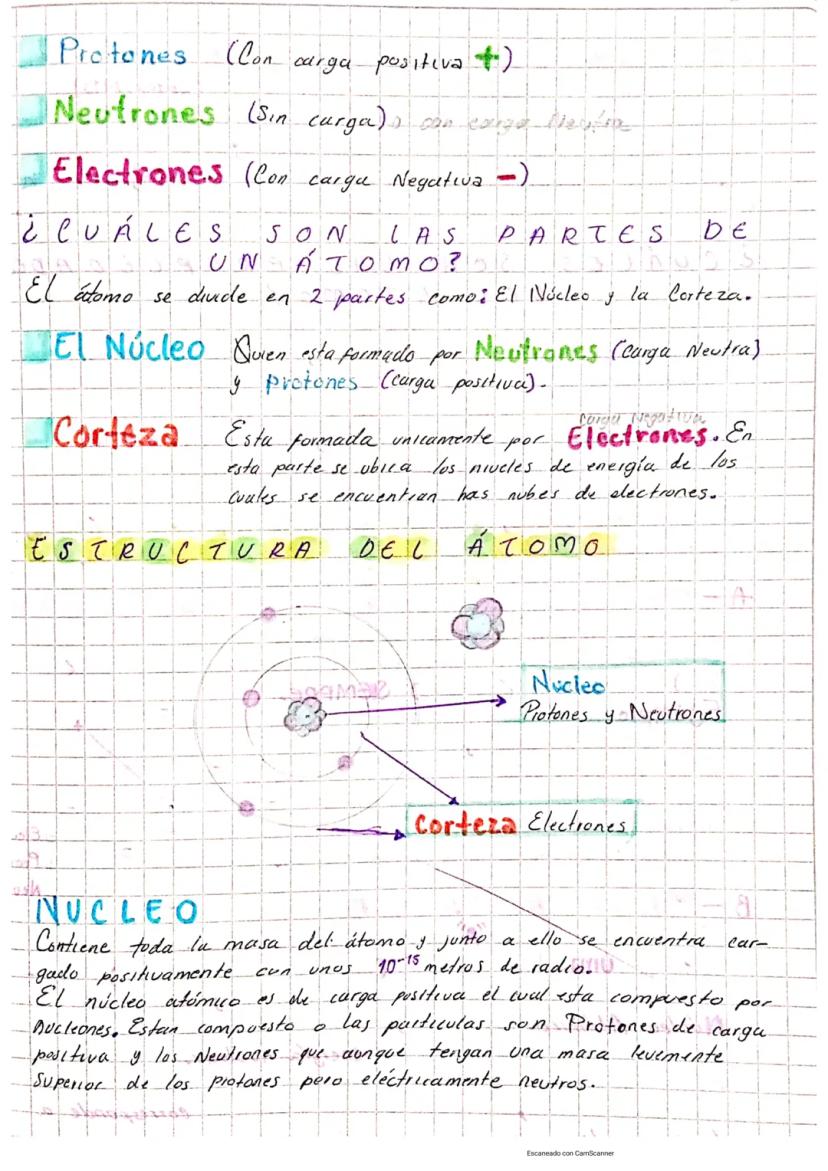 Protones (Con carga positiva +)
Neutrones (Sin carga) o con carga Neutra
Electrones (Con carga Negativa -)
¿CUÁLES SON LAS PARTES DE
UN ÁTOMO?
El átomo se divide en 2 partes como: El Núcleo y la Corteza.
El Núcleo Quien esta formado por Neutrones (carga Neutra)
y protones (carga positiva).
carga Negativa
Corteza Esta formada unicamente por Electrones. En
esta parte se ubica los niveles de energía de los
cuales se encuentran has nubes de electrones.
ESTRUCTURA DEL ÁTOMO
Nucleo
Protones y Neutrones
Corteza Electrones
NUCLEO
Contiene toda la masa del átomo y junto a ello se encuentra car-
gado positivamente con unos 10⁻¹⁵ metros de radio.
El núcleo atómico es de carga positiva el cual esta compuesto por
Nucleones. Estan compuesto o las particulas son Protones de carga
positiva y los Neutrones que aunque tengan una masa levemente
Superior de los protones pero eléctricamente neutros.
Escaneado con CamScanner